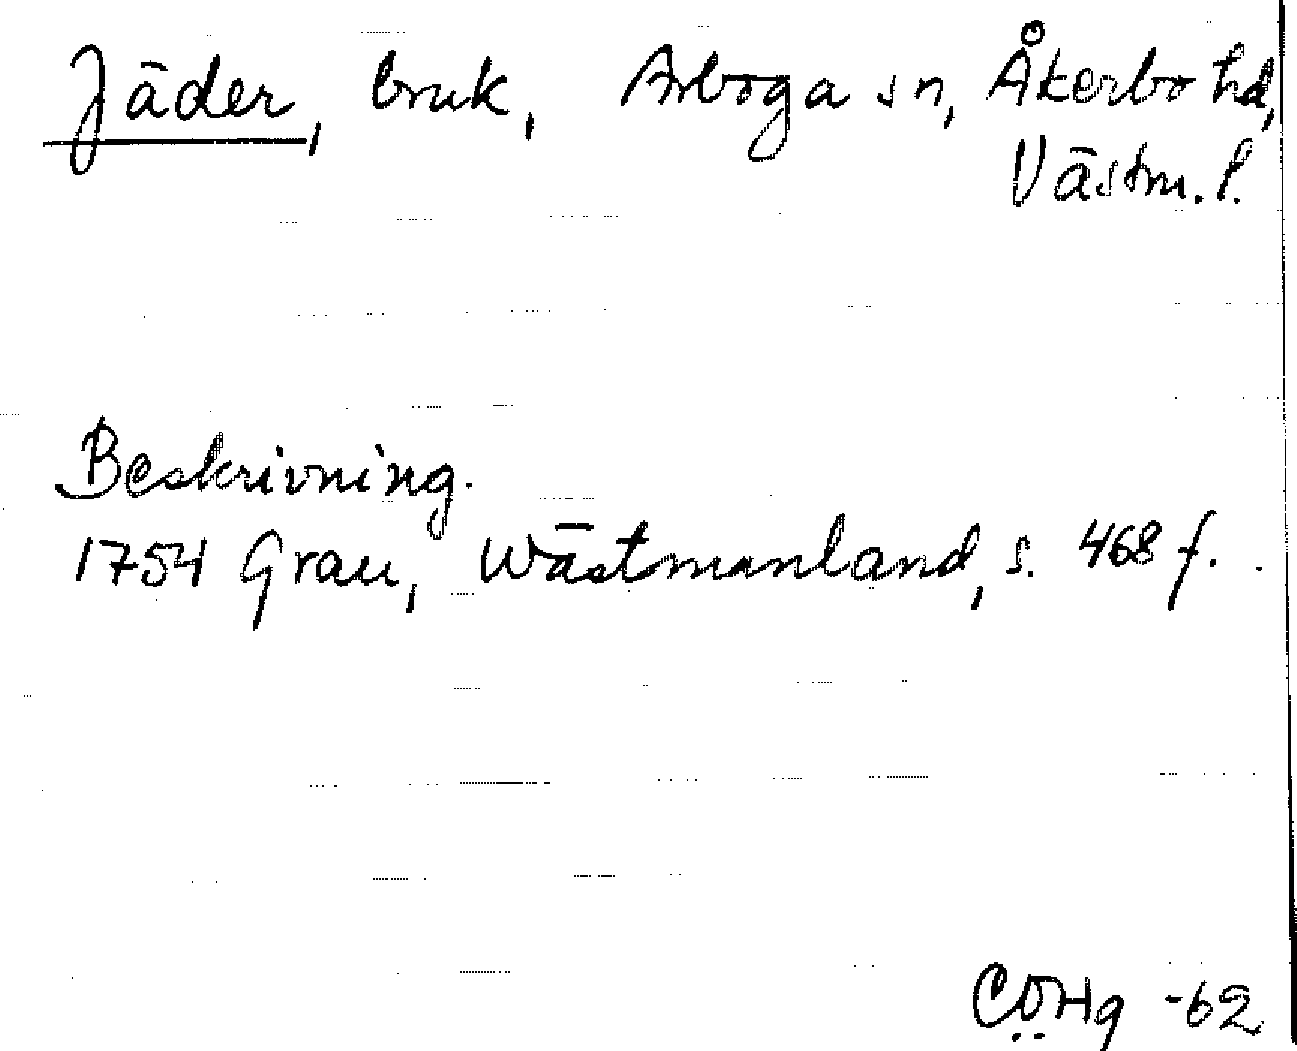 Jäder, bruk, Arboga sn, Åkerbo hd,
Västm. l.
Beskrivning.
1754 Grau, Wästmanland, s. 468 f.
CÖHg -62